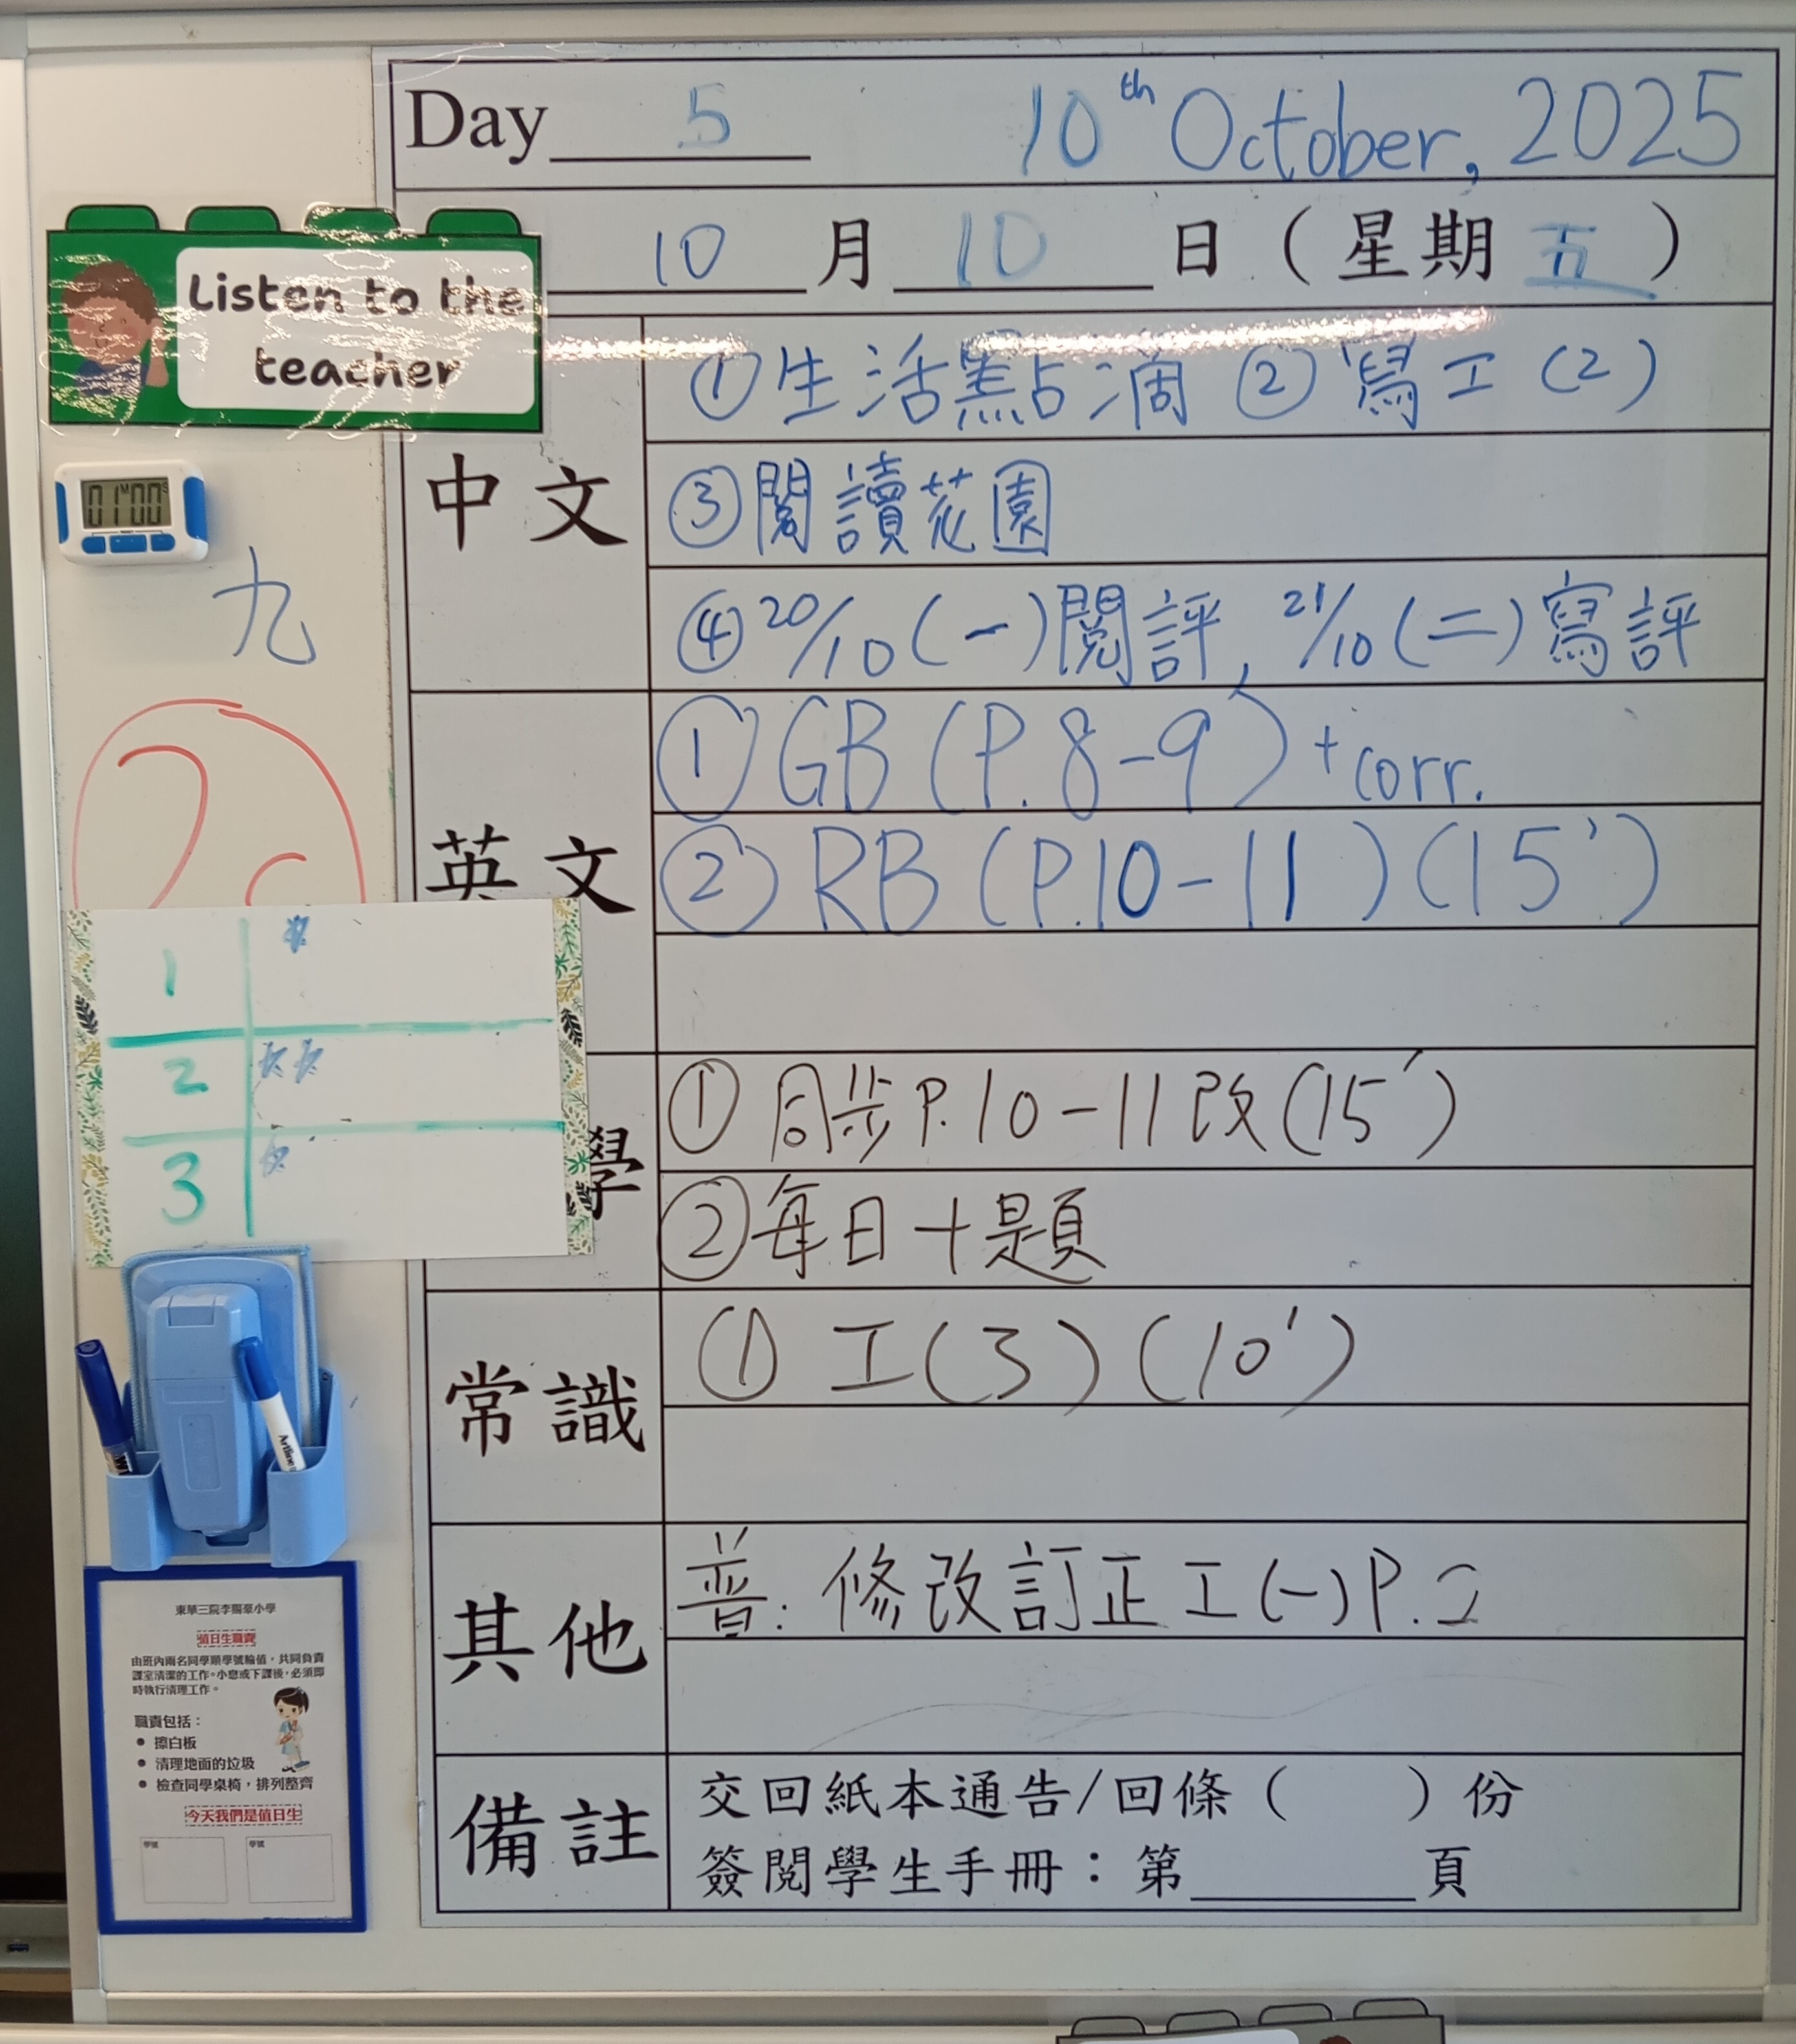 Day 5 10th October, 2025
10 月 10 日 (星期 五)
Listen to the
teacher
中文
①生活點滴 ②寫工(2)
③閱讀花園
④20/10(一)閱評, 21/10(二)寫評
01M00S
九
英文
①GB (P.8-9) + corr.
②RB (P.10-11) (15')
1
2
3
學
①同步P.10-11改(15')
②每日十題
常識
① 工(3) (10')
Artline
其他
普: 修改訂正工(一)P.2
備註
交回紙本通告/回條( )份
簽閱學生手冊：第 頁
東華三院李賜豪小學
值日生職責
由班內兩名同學順學號輪值，共同負責
課室清潔的工作。小息或下課後，必須即
時執行清理工作。
職責包括：
• 擦白板
• 清理地面的垃圾
• 檢查同學桌椅，排列整齊
今天我們是值日生
學號 學號